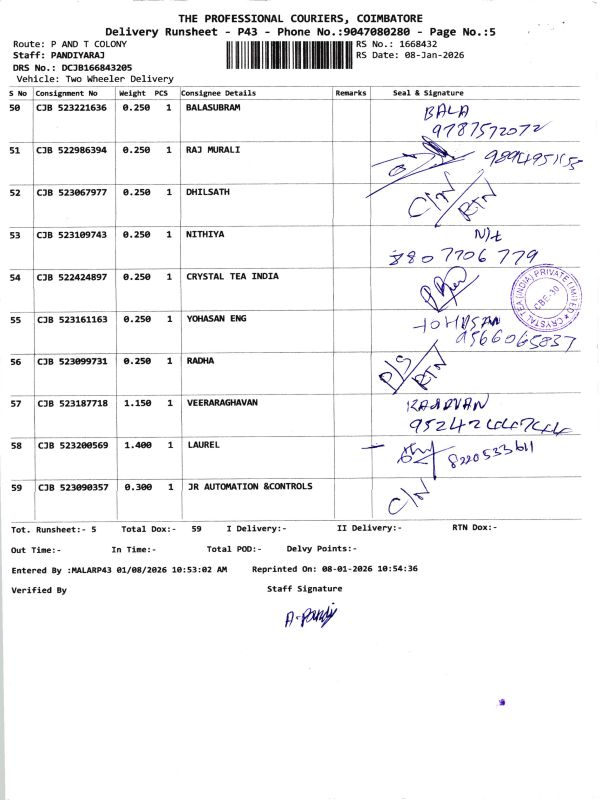 THE PROFESSIONAL COURIERS, COIMBATORE
Delivery Runsheet - P43 - Phone No.:9047080280 - Page No.:5
Route: P AND T COLONY RS No.: 1668432
Staff: PANDIYARAJ RS Date: 08-Jan-2026
DRS No.: DCJB166843205
Vehicle: Two Wheeler Delivery
S No Consignment No Weight PCS Consignee Details Remarks Seal & Signature
50 CJB 523221636 0.250 1 BALASUBRAM BALA
9787572072
51 CJB 522986394 0.250 1 RAJ MURALI
52 CJB 523067977 0.250 1 DHILSATH C/N RTN
53 CJB 523109743 0.250 1 NITHIYA Nit
8807706779
54 CJB 522424897 0.250 1 CRYSTAL TEA INDIA
CRYSTAL TEA (INDIA) PRIVATE LIMITED
CBE-30
55 CJB 523161163 0.250 1 YOHASAN ENG
9566065837
56 CJB 523099731 0.250 1 RADHA D/S RTN
57 CJB 523187718 1.150 1 VEERARAGHAVAN
58 CJB 523200569 1.400 1 LAUREL 8220533611
59 CJB 523090357 0.300 1 JR AUTOMATION &CONTROLS C/N
Tot. Runsheet:- 5 Total Dox:- 59 I Delivery:- II Delivery:- RTN Dox:-
Out Time:- In Time:- Total POD:- Delvy Points:-
Entered By :MALARP43 01/08/2026 10:53:02 AM Reprinted On: 08-01-2026 10:54:36
Verified By Staff Signature
A. Pandi